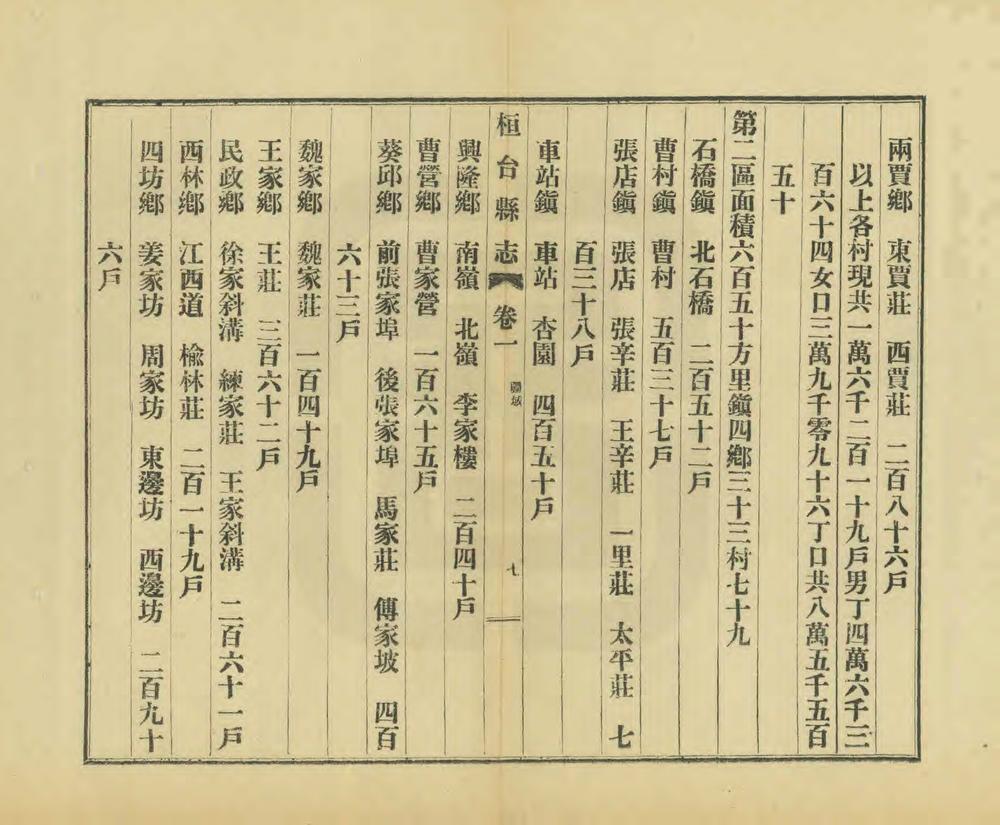 兩賈鄉　東賈莊　西賈莊　二百八十六戶
以上各村現共一萬六千二百一十九戶男丁四萬六千三
百六十四女口三萬九千零九十六丁口共八萬五千五百
五十
第二區面積六百五十方里鎮四鄉三十三村七十九
石橋鎮　北石橋　二百五十二戶
曹村鎮　曹村　五百三十七戶
張店鎮　張店　張辛莊　王辛莊　一里莊　太平莊　七
百三十八戶
車站鎮　車站　杏園　四百五十戶
桓台縣志　卷一　疆域　七
興隆鄉　南嶺　北嶺　李家樓　二百四十戶
曹營鄉　曹家營　一百六十五戶
葵邱鄉　前張家埠　後張家埠　馬家莊　傅家坡　四百
六十三戶
魏家鄉　魏家莊　一百四十九戶
王家鄉　王莊　三百六十二戶
民政鄉　徐家斜溝　練家莊　王家斜溝　二百六十一戶
西林鄉　江西道　楡林莊　二百一十九戶
四坊鄉　姜家坊　周家坊　東邊坊　西邊坊　二百九十
六戶